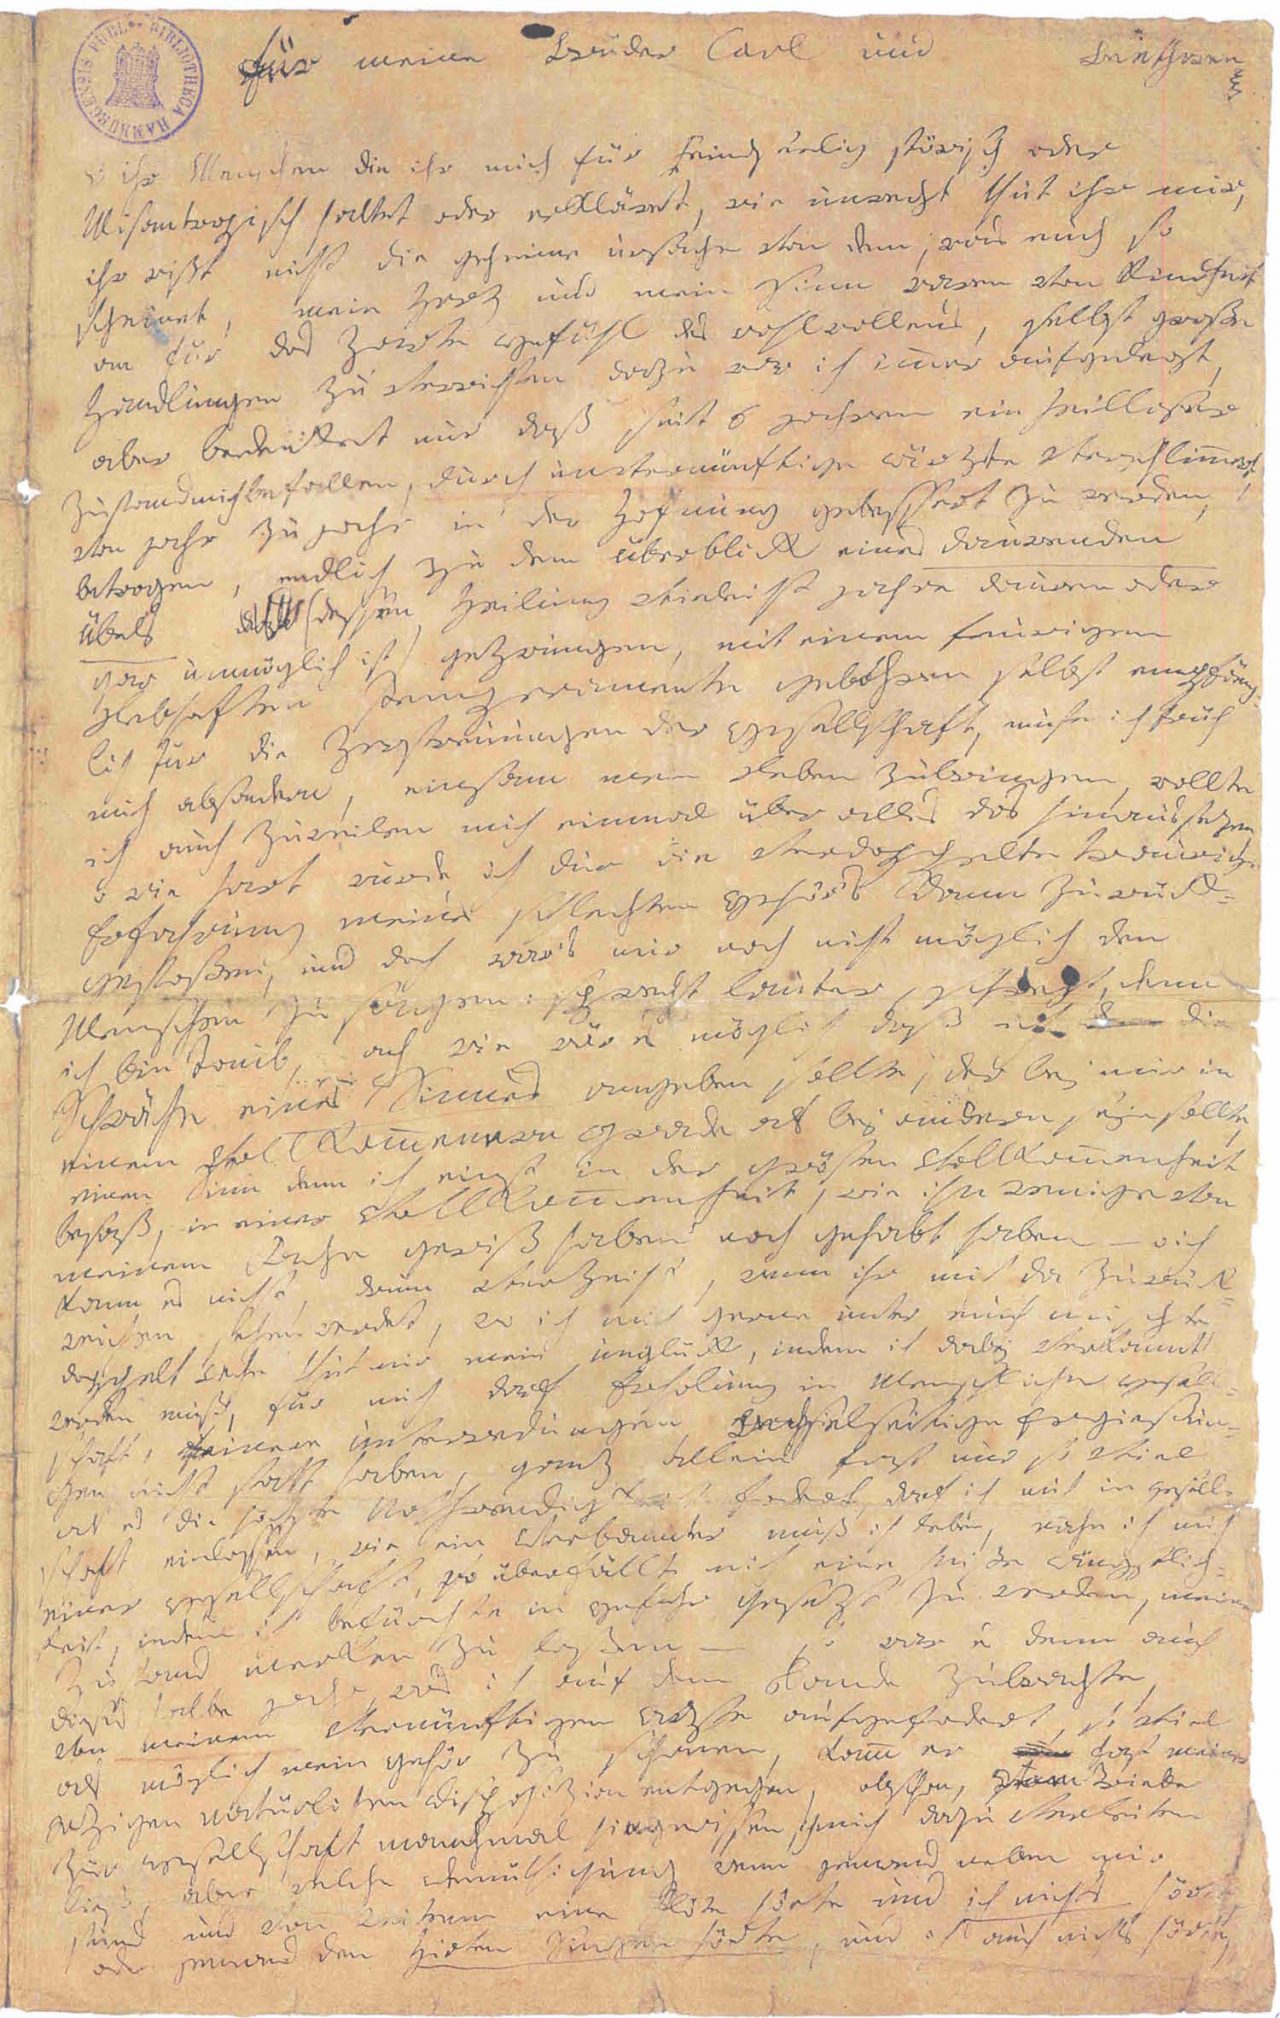 PUBL. BIBLIOTHECA HAMBURGENSIS
für meine Brüder Carl und Beethowen
o ihr Menschen die ihr mich für feindseelig störisch oder
Misantropisch haltet oder erkläret, wie unrecht thut ihr mir,
ihr wißt nicht die geheime ursache von dem, was euch so
scheinet, mein Herz und mein Sinn waren von Kindheit
an für das Zarte Gefühl des wohlwollens, selbst große
Handlungen zu verrichten dazu war ich imer aufgelegt,
aber bedenket nur daß seit 6 jahren ein heilloser
Zustand mich befallen, durch unvernünftige ärzte verschlimert,
von jahr zu jahr in der Hofnung gebessert zu werden,
betrogen, endlich zu dem überblick eines daurenden
übels (dessen Heilung vieleicht jahre dauren oder
gar unmöglich ist) gezwungen, mit einem feurigen
Lebhaften Temperamente gebohren selbst empfäng-
lich für die Zerstreuungen der Gesellschaft, muste ich früh
mich absondern, einsam mein Leben zubringen, wollte
ich auch zuweilen mich einmal über alles das hinaussezen,
o wie hart wurde ich dur die verdoppelte traurige
Erfahrung meines schlechten Gehör's dann zurück-
gestoßen, und doch war's mir noch nicht möglich den
Menschen zu sagen: sprecht lauter, schreyt, denn
ich bin Taub, ach wie wär es möglich daß ich die
Schwäche eines Sinnes angeben sollte, der bey mir in
einem vollkomenern Grade als bey andern seyn sollte,
einen Sinn denn ich einst in der grösten Vollkomenheit
besaß, in einer Vollkomenheit, wie ihn wenige von
meinem Fache gewiß haben noch gehabt haben – o ich
kann es nicht, drum verzeiht, wenn ihr mich da zurück-
weichen sehen werdet, wo ich mich gerne unter euch mischte
doppelt wehe thut mir mein unglück, indem ich dabey verkannt
werden muß, für mich darf Erholung in Menschlicher Gesell-
schaft, feinere unterredungen, wechselseitige Ergießun-
gen nicht statt haben, ganz allein fast nur so viel
als es die höchste Nothwendigkeit fodert, darf ich mich in gesell-
schaft einlassen, wie ein Verbannter muß ich leben, nahe ich mich
einer Gesellschaft, so überfällt mich eine heiße ängstlich-
keit, indem ich befürchte in Gefahr gesezt zu werden, meinen
Zustand merken zu laßen – so war es denn auch
dieses halbe jahr, was ich auf dem Lande zubrachte,
von meinem Vernünftigen Arzte aufgefodert, so viel
als möglich mein Gehör zu schonen, kamm er fast meiner
jezigen natürlichen Disposizion entgegen, obschon, vom Triebe
zur Gesellschaft manchmal hingerissen, ich mich dazu verleiten
ließ, aber welche Demüthigung wenn jemand neben mir
stund und von weitem eine Flöte hörte und ich nichts hörte
oder jemand den Hirten Singen hörte, und ich auch nichts hörte,